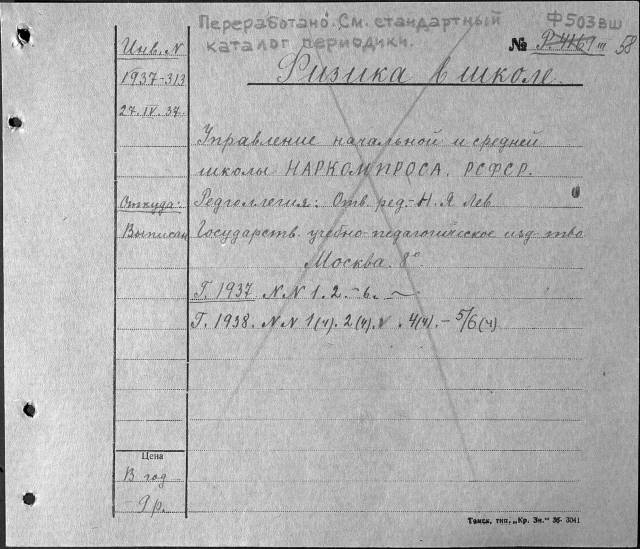 Переработано. См. стандартный
каталог периодики.
Ф503вш
№ III 58
Физика в школе.
Инв. N
1937-313
27.IV.37
Управление начальной и средней
школы НАРКОМПРОСА. РСФСР.
Откуда: Редколлегия: Отв. ред. - Н. Я Лев
Выписан Государств. учебно-педагогическое изд-тво
Москва. 8°
Г. 1937. N N 1. 2. - 6.
Г. 1938. N N 1(ч). 2(ч). 4(ч). - 5/6(ч)
Цена
В год
9 р.
Томск, тип. „Кр. Зн." 36- 3041